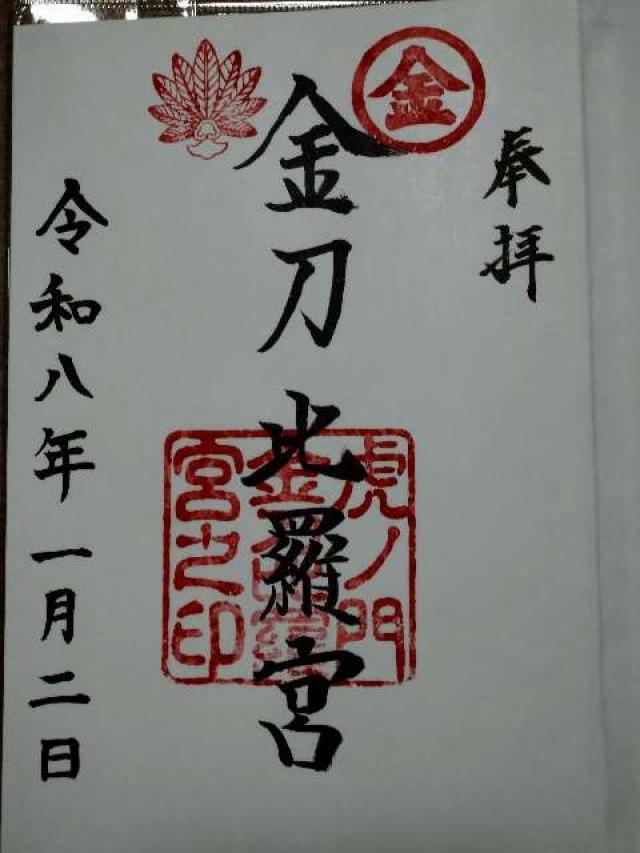 奉拝
金
金刀比羅宮
虎ノ門
金刀比羅
宮之印
令和八年一月二日